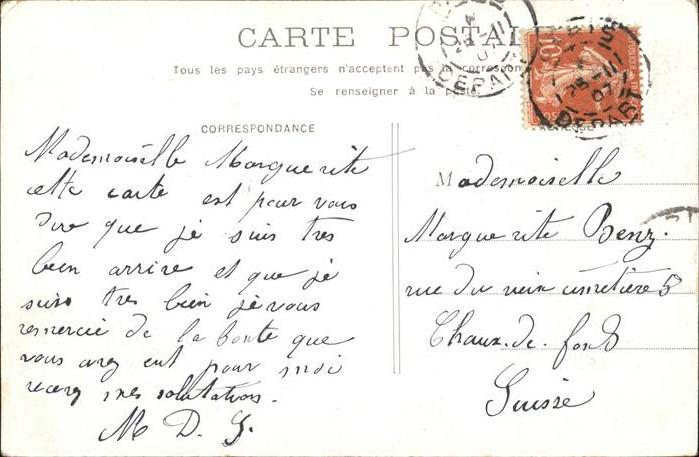 CARTE POSTALE
Tous les pays étrangers n'acceptent pas la correspon
Se renseigner à la poste.
CORRESPONDANCE
Mademoiselle Marguerite
cette carte est pour vous
dire que je suis tres
bien arrive et que je
suis tres bien je vous
remercie de la bonte que
vous avez eut pour moi
recevez mes salutations.
M D. S.
Mademoiselle
Marguerite Benz.
rue du veix cimetière 5
Chaux. de. fonds
Suisse
10
DEPART
25 - 11
07
DEPART